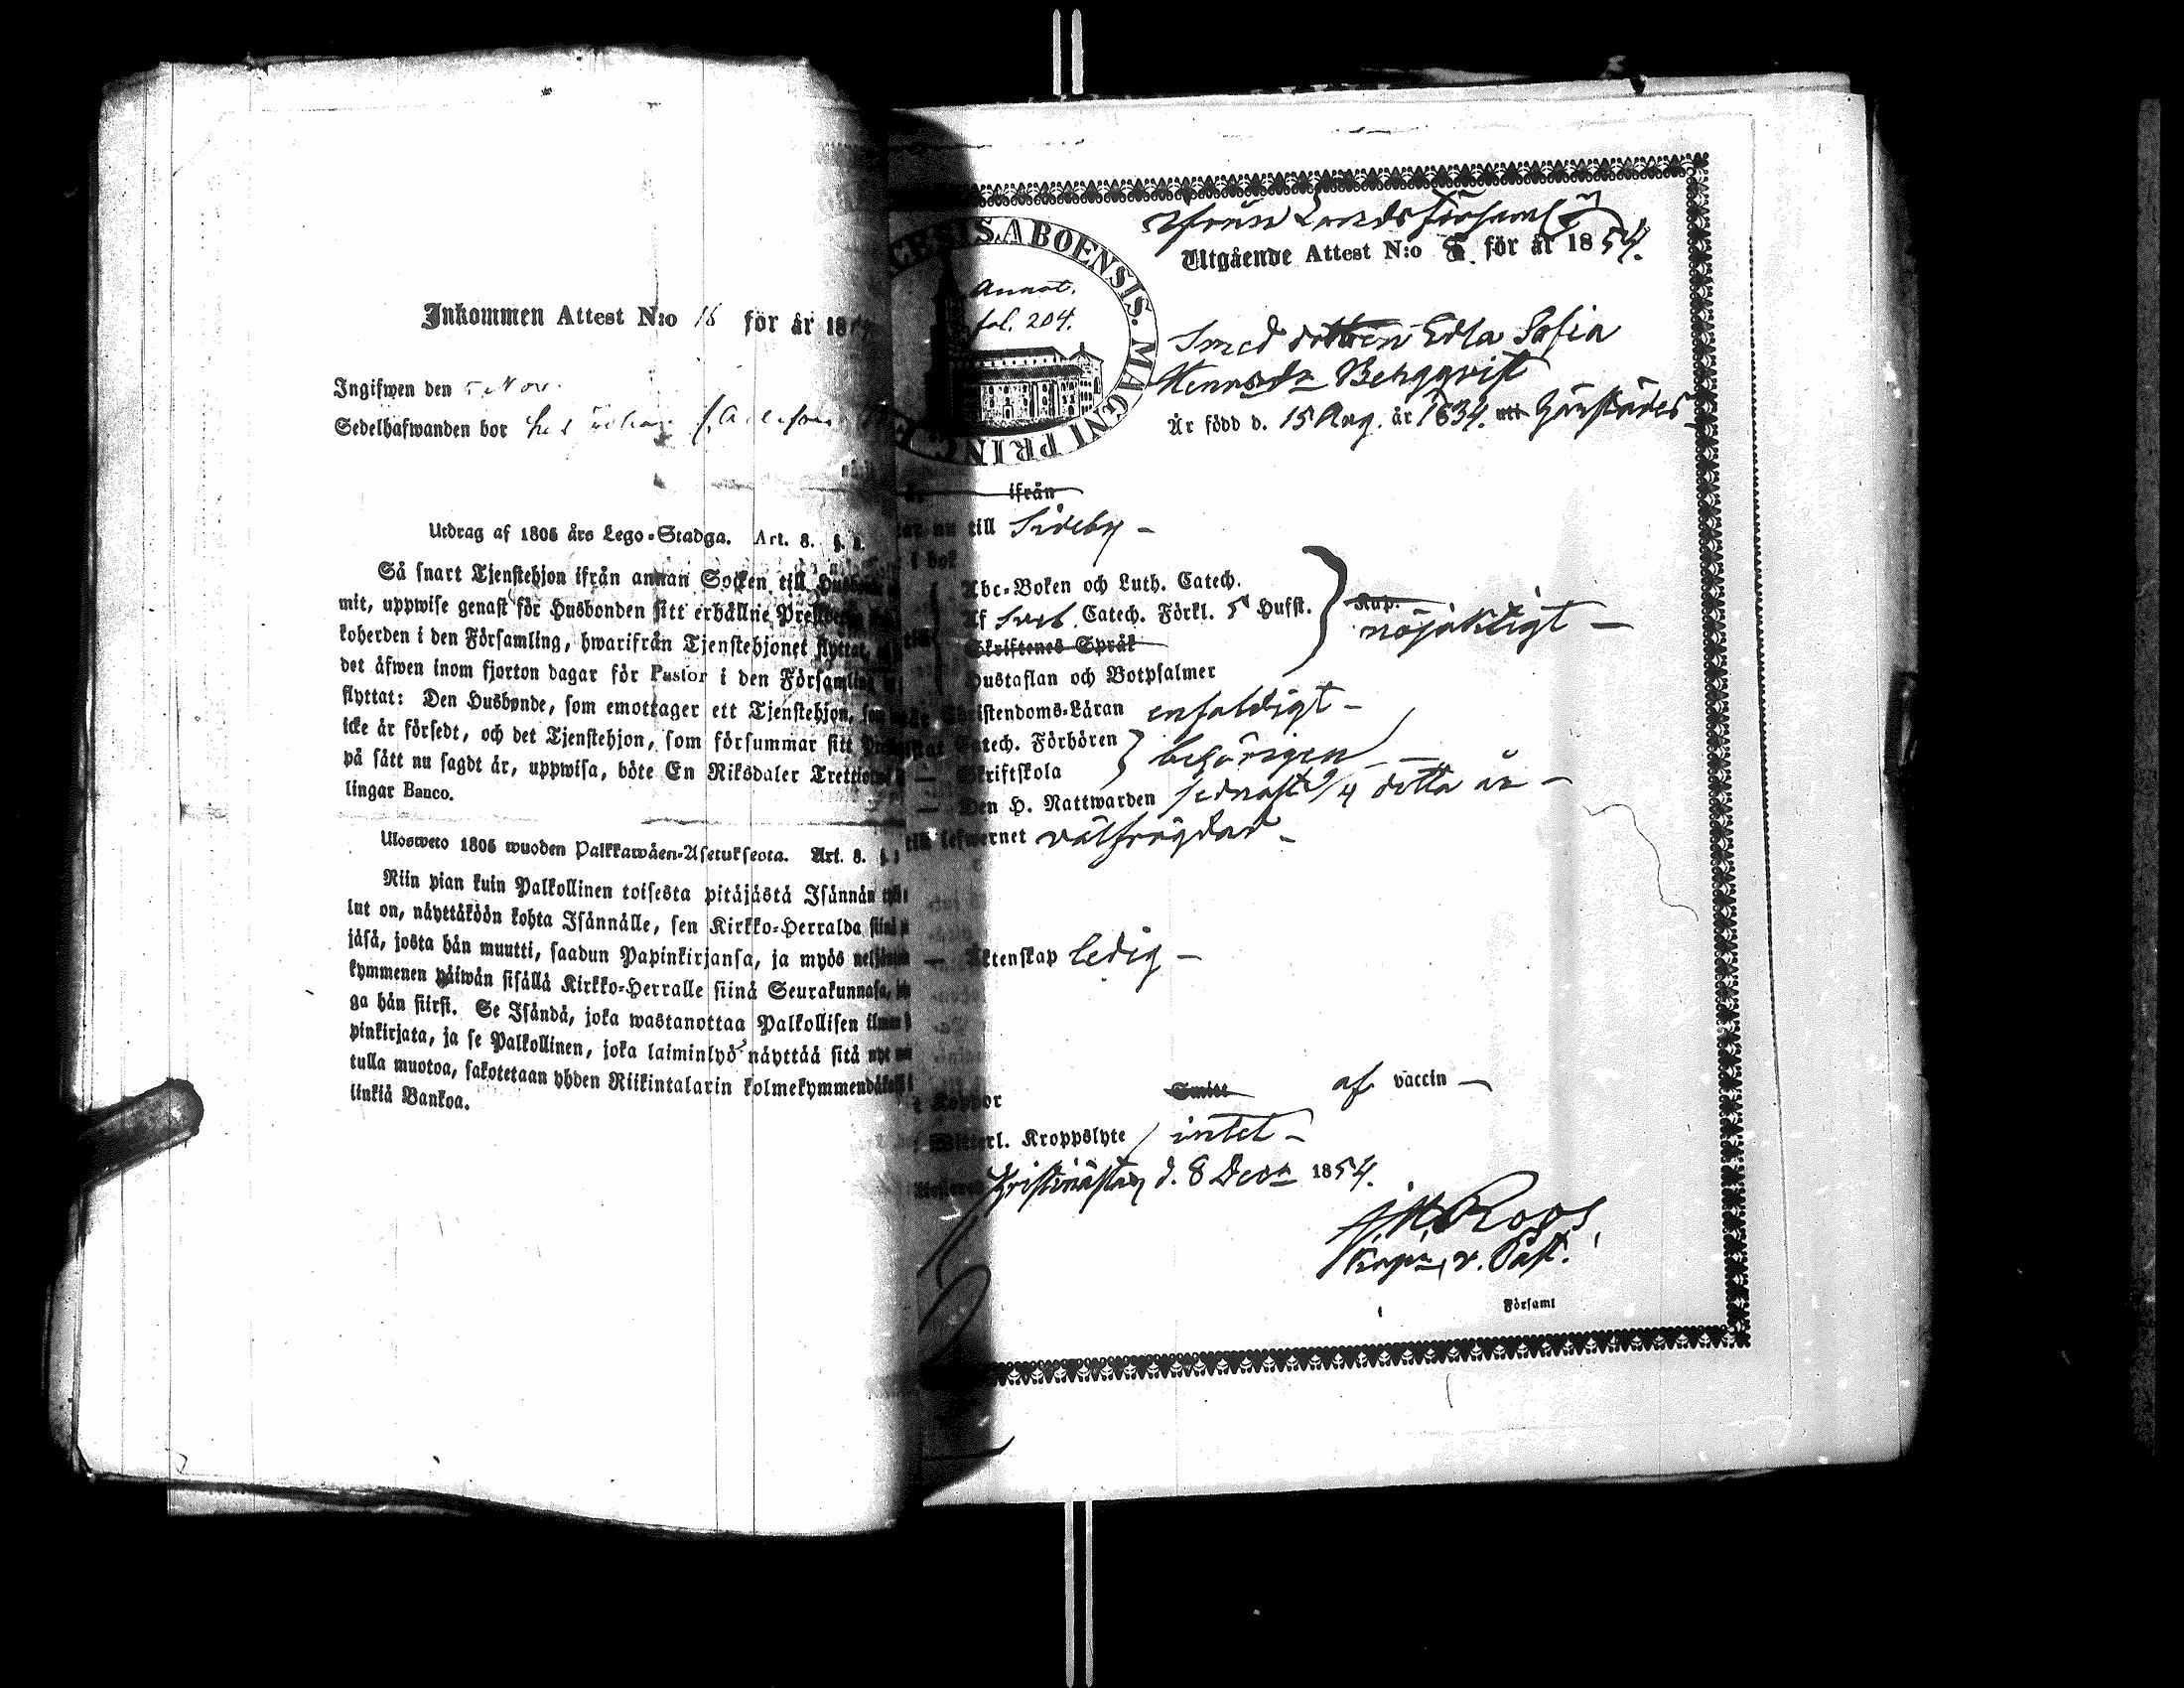 Inkommen Attest N:o 18 för år 18
Ingifwen den 5 Nov.
Sedelhafwanden bor hos
Utdrag af 1805 års Lego-Stadga. Art. 8. §.
Så snart Tjenstehjon ifrån annan Socken till Husbonde
mit, uppwise genast för Husbonden sitt erhållne Prestbetyg
koherden i den Församling, hwarifrån Tjenstehjonet flyttat,
det äfwen inom fjorton dagar för Pastor i den Församling
flyttat: Den Husbonde, som emottager ett Tjenstehjon, som
icke är försedt, och det Tjenstehjon, som försummar sitt
på sätt nu sagdt är, uppwisa, böte En Riksdaler Trettiotwå
lingar Banco.
Ulosweto 1805 wuoden Palkkawäen-Asetuksesta. Art. 8. §.
Niin pian kuin Palkollinen toisesta pitäjästä Isännän työ
lut on, näyttäköön kohta Isännälle, sen Kirkko-Herralda siinä
jäsä, josta hän muutti, saadun Papinkirjansa, ja myös neljän
kymmenen päiwän sisällä Kirkko-Herralle siinä Seurakunnasa,
ga hän siirsi. Se Isändä, joka wastanottaa Palkollisen ilman
pinkirjata, ja se Palkollinen, joka laiminlyö näyttää sitä nyt
tulla muotoa, sakotetaan yhden Riikintalarin kolmekymmendäkaksi
linkiä Bankoa.
ABOENSIS. MAGNI PRINC
Annot.
fol. 204.
ifrån Landsförsaml
Utgående Attest N:o 8. för år 1854.
Smed dottren Edla Sofia
Henriksdr Bergqvist
Är född d. 15 Aug. år 1834.
ifrån
nu till Sideby –
i bok
Abc-Boken och Luth. Catech.
Af Sveb. Catech. Förkl. 5 Hufst.
Kap.
nöjaktigt –
Skriftenes Språk
Hustaflan och Botpsalmer
Christendoms-Läran enfaldigt –
Catech. Förhören
behörigen –
– Skriftskola
– Den H. Nattwarden sednast 9/4 detta år –
till lefwernet välfrägdad –
– Äktenskap ledig –
Koppor Smitt af vaccin –
Witterl. Kroppslyte intet –
Kristinestad d. 8 Decr 1854.
J. H. Roos
Kapn, v. Past.
Församl